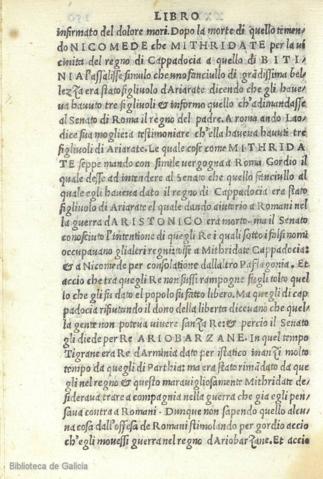 LIBRO
infirmato del dolore mori. Dopo la morte di quello temen-
do NICOMEDE che MITHRIDATE per la vi
cinita del regno di Cappadocia a quello di BITI-
NIA l'assalisse simulo che uno fanciullo di grãdissima bel
lezza era stato figliuolo d'Ariarate dicendo che gli haue-
ua hauuto tre figliuoli & informo quello ch'adimandasse
al Senato di Roma il regno del padre. A roma ando Lao
dice sua mogliera testimoniare ch'ella haueua hauuti tre
figliuoli di Ariarate. Le quale cose come MITHRIDA
TE seppe mando con simile vergogna a Roma Gordio il
quale desse ad intendere al Senato che quello fanciullo al
quale egli haueua dato il regno di Cappadocia era stato
figliuolo di Ariarate el quale dando aiutorio a Romani nel
la guerra d'ARISTONICO era morto. ma il Senato
conosciuto l'intentione di quegli Re i quali sotto i falsi nomi
occupauano gli altri regni: tolse a Mithridate Cappadocia:
& a Nicomede per consolatione dalla tro Paflagonia. Et
accio che tra quegli Re non fussi rampogne fu gli tolto quel
lo che gli fu dato el popolo fu fatto libero. Ma quegli di cap
padocia rifiutando il dono della liberta diceuano che quel
la gente non poteua viuere sanza Re: & percio il Senato
gli diede per Re ARIOBARZANE. In quel tempo
Tigrane era Re d'Arminia dato per istatico inanzi molto
tempo da quegli di Parthia: ma era stato rimãdato da que
gli nel regno & questo marauigliosamente Mithridate de-
sideraua trare a compagnia nella guerra che gia egli pen-
saua contra a Romani. Dunque non sapendo quello alcu-
na cosa dall'offesa de Romani stimolando per gordio accio
ch'egli mouessi guerra nel regno d'Ariobarzane. Et accio
Biblioteca de Galicia